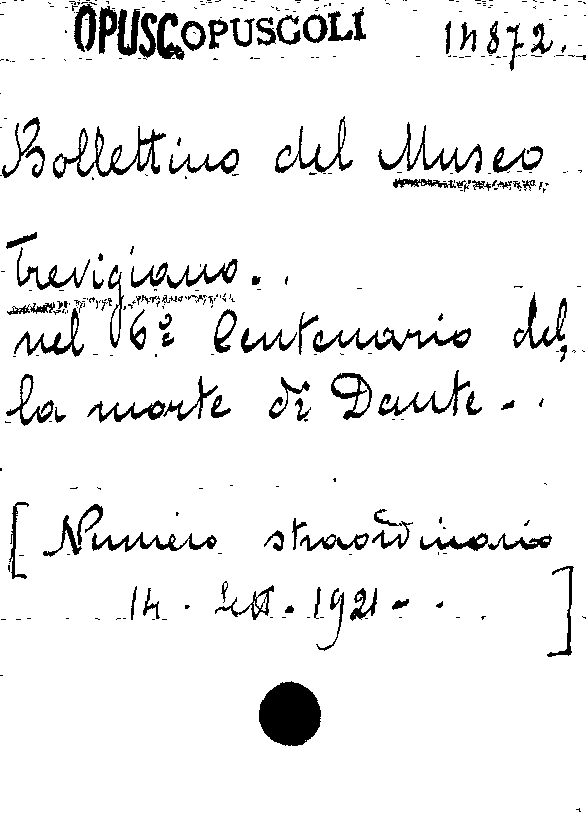 OPUSC. OPUSCOLI 14872.
Bollettino del Museo
Trevigiano..
nel 6º Centenario del,
la morte di Dante..
[Numero straordinario
14. Sett. 1921..]